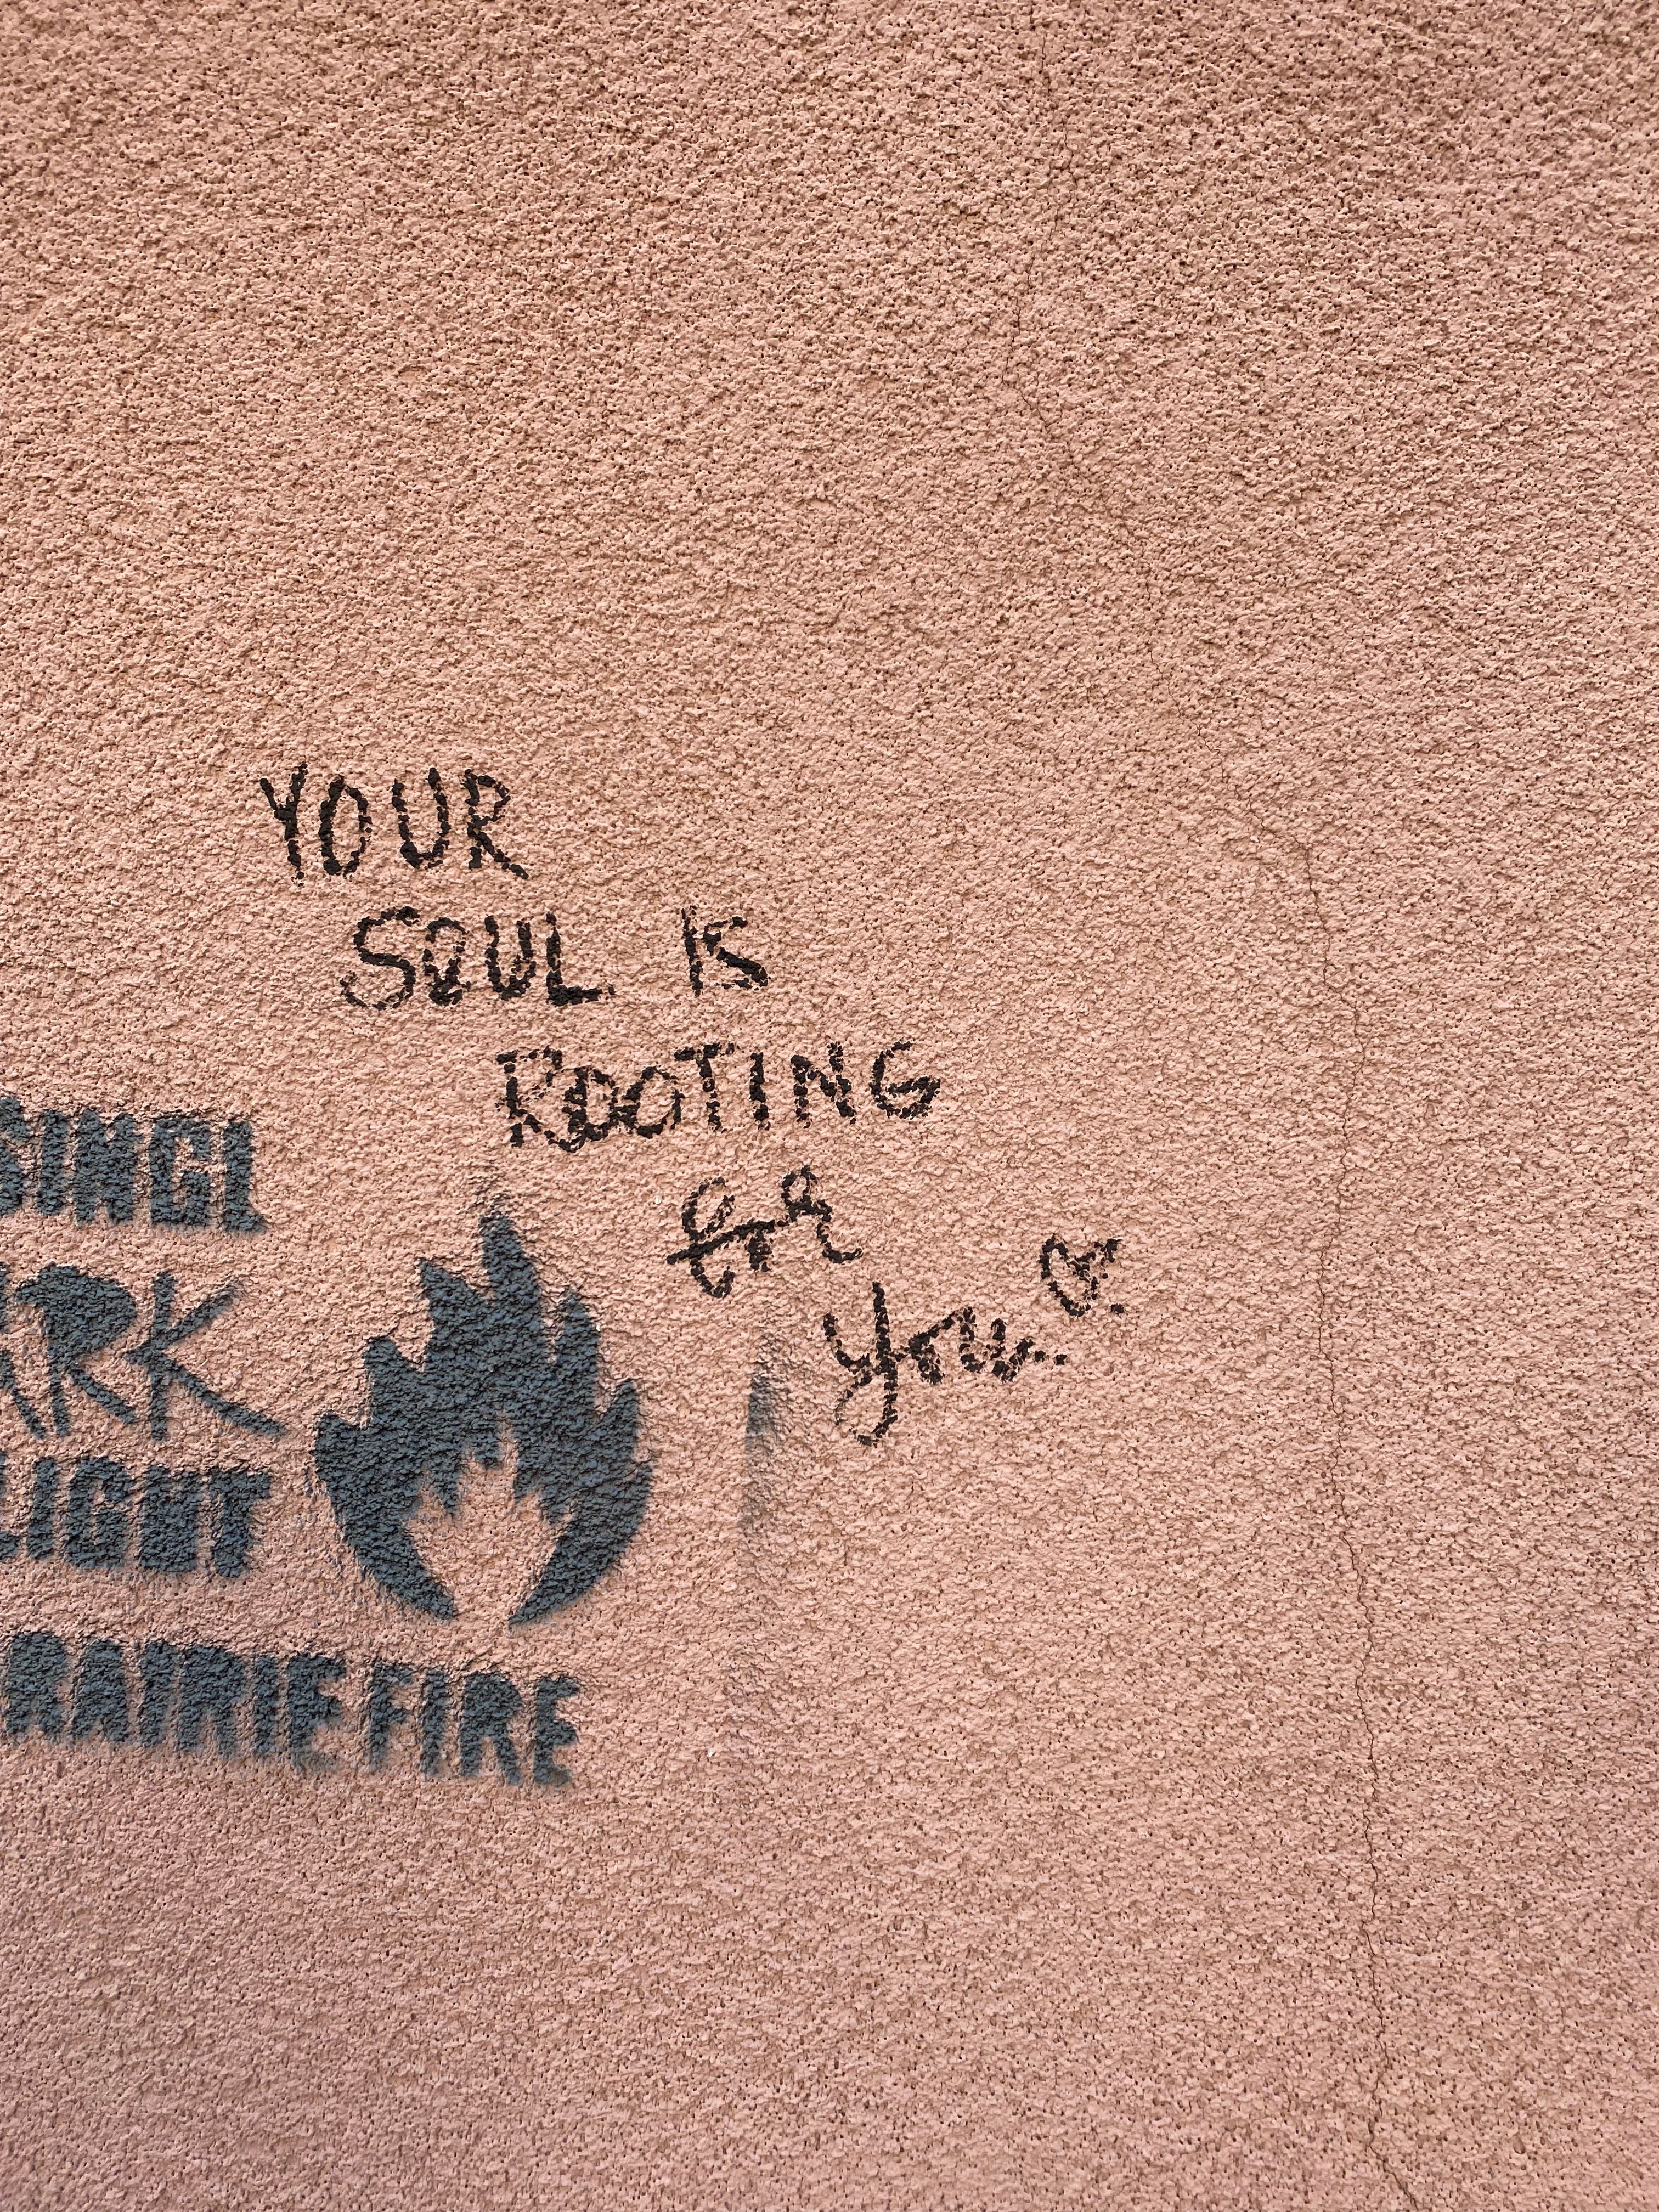 YOUR
SOUL IS
ROOTING
for
you.
SINGL
ARK
LIGHT
RAIRIE FIRE